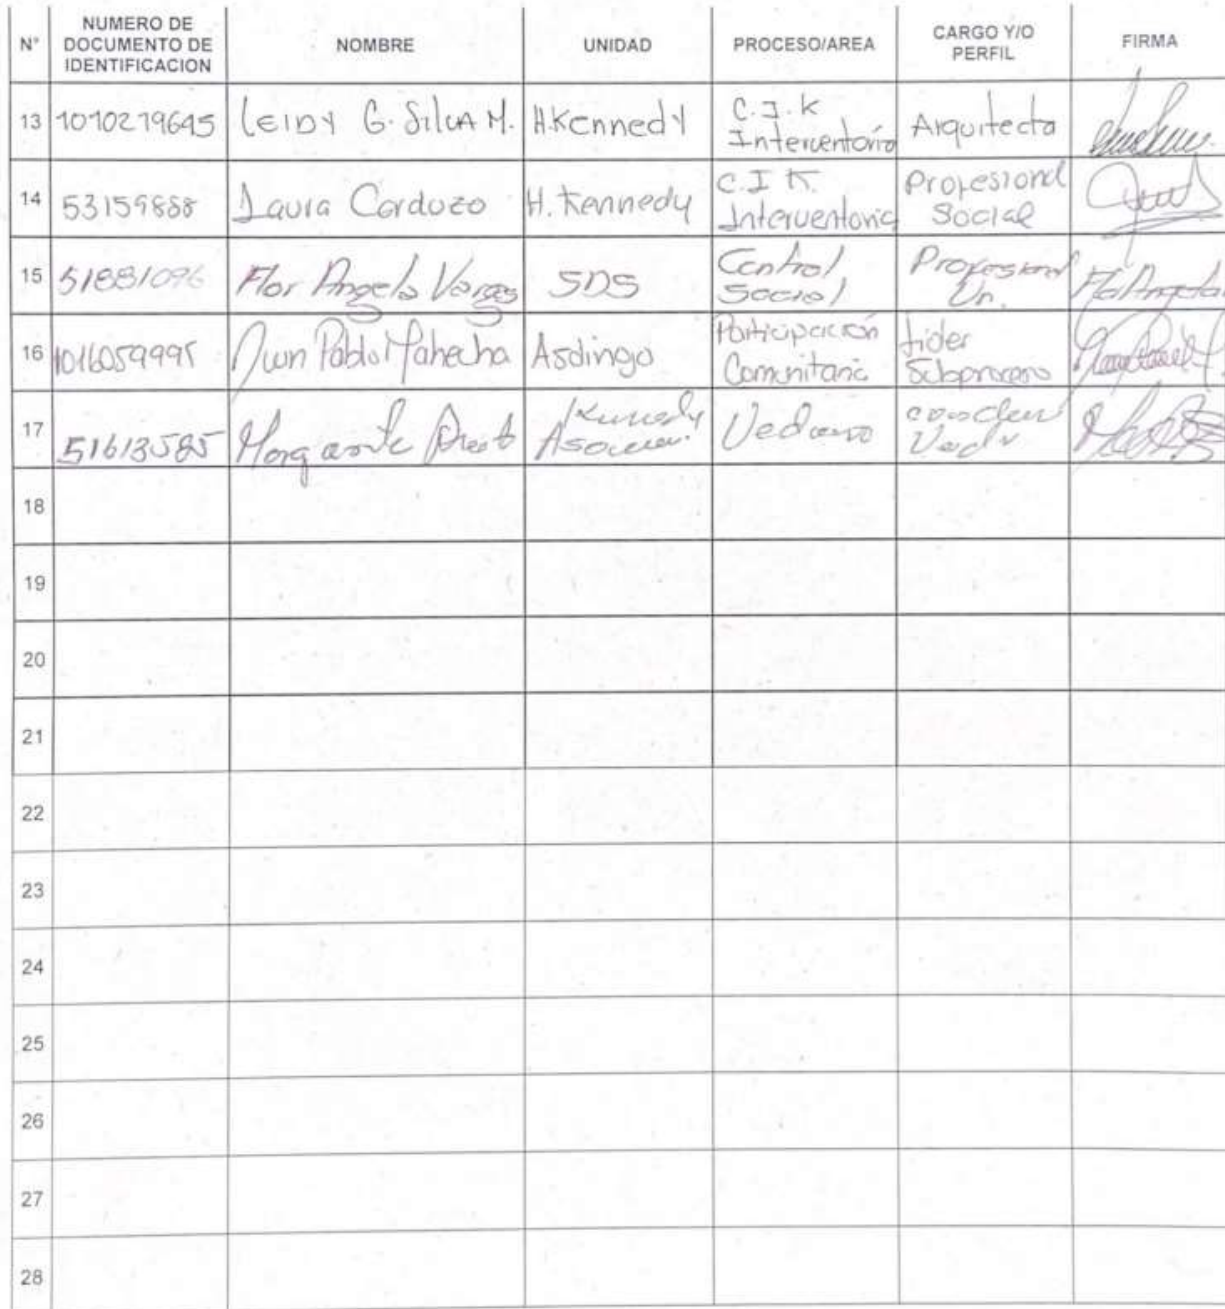 N° NUMERO DE DOCUMENTO DE IDENTIFICACION NOMBRE UNIDAD PROCESO/AREA CARGO Y/O PERFIL FIRMA
13 1010219645 LEIDY G. SilvA M. H.KennedY C.I.K Interventoría Arquitecta
14 53159888 Laura Carduzo H. Kennedy C.I K. Interventoria Profesional Social
15 51881096 Flor Angela Vargas SDS Control Social Profesional Un. Flor Angela
16 1016059995 Juan Pablo Mahecha Asdingo Participación Comunitaria Lider Subproceso
17 51613585 Kennedy
18
19
20
21
22
23
24
25
26
27
28